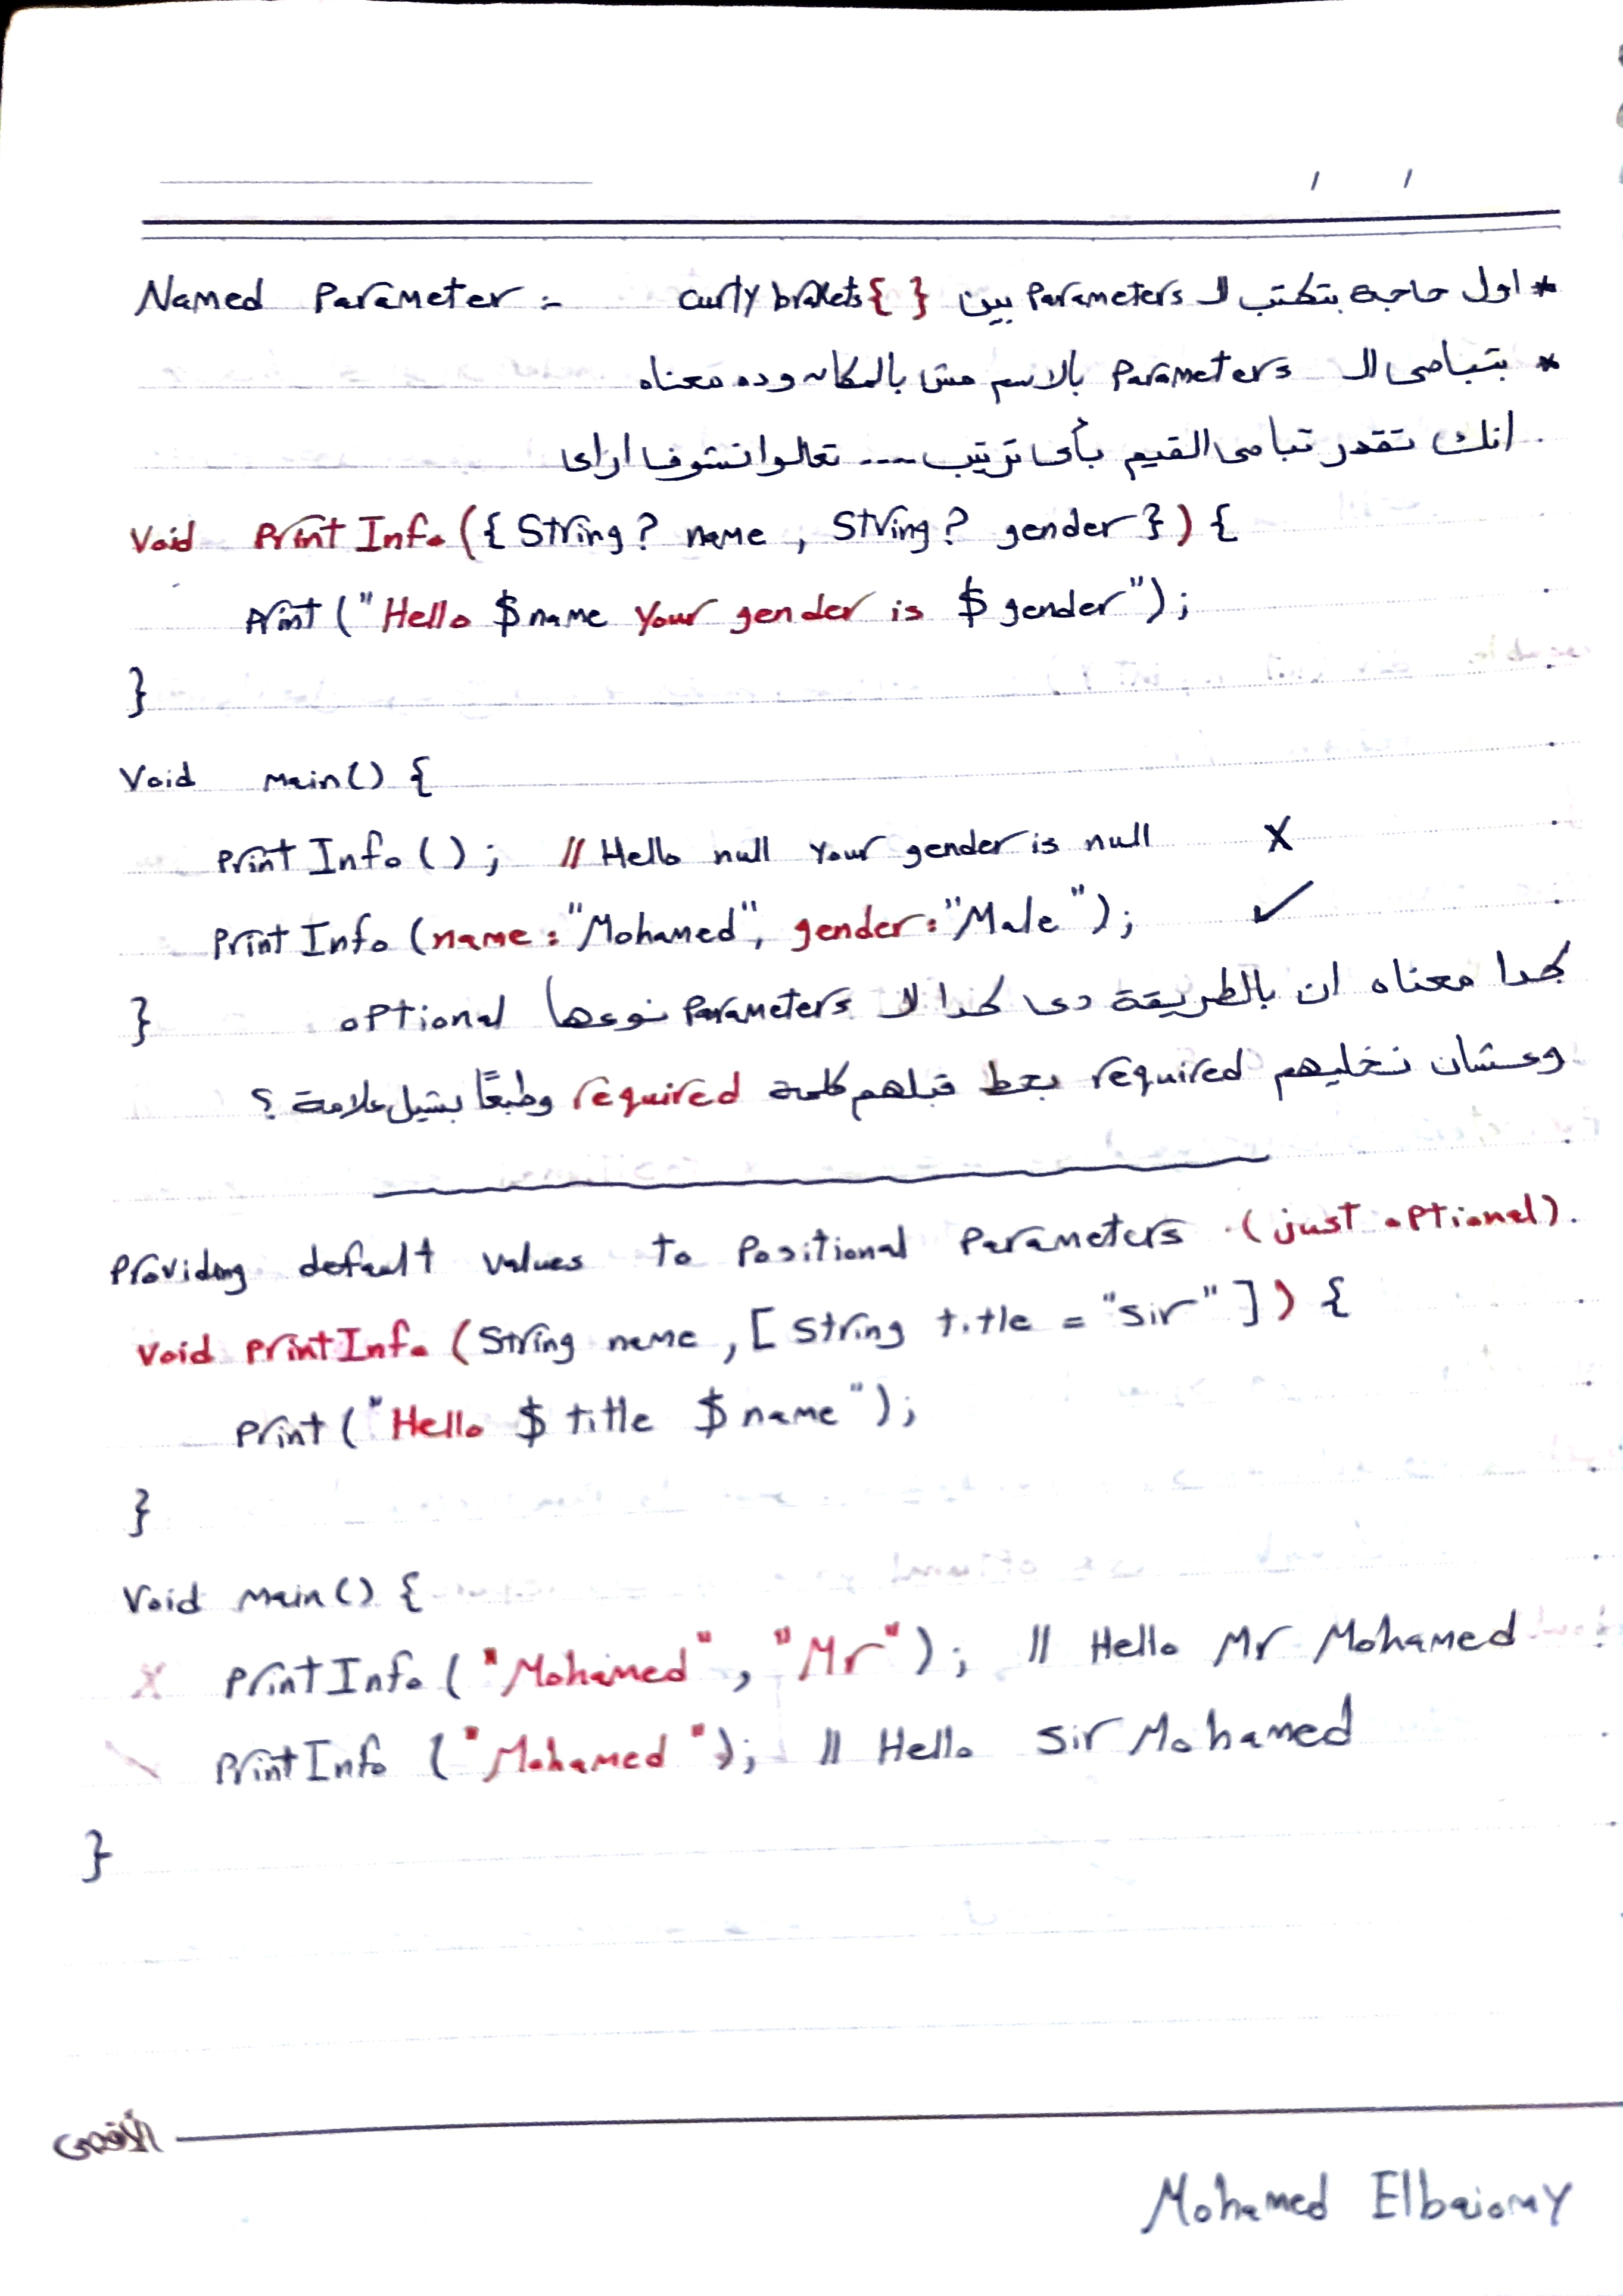 Named Parameter :-
* اول حاجه بتكتب ال Parameters بين curly brakets { }
* بتباصى ال Parameters بالاسم مش بالمكان وده معناه
انك تقدر تباصى القيم بأى ترتيب ---- تعالوا نشوف ازاى
Void PrintInfo ({ String? name , String? gender }) {
Print ("Hello $name Your gender is $gender");
}
Void main() {
PrintInfo () ; // Hello null Your gender is null X
PrintInfo (name : "Mohamed", gender : "Male"); ✓
كدا معناه ان بالطريقة دى كدا لا Parameters نوعها optional
}
وعشان نخليهم required بحط قبلهم كلمة required وطبعًا بشيل علامة ؟
Providing default values to Positional Parameters (just optional).
Void PrintInfo (String name , [ String title = "Sir" ]) {
Print ("Hello $title $name");
}
Void main() {
PrintInfo ("Mohamed", "Mr"); // Hello Mr Mohamed
PrintInfo ("Mohamed"); // Hello Sir Mohamed
}
الأقصى
Mohamed Elbaiomy